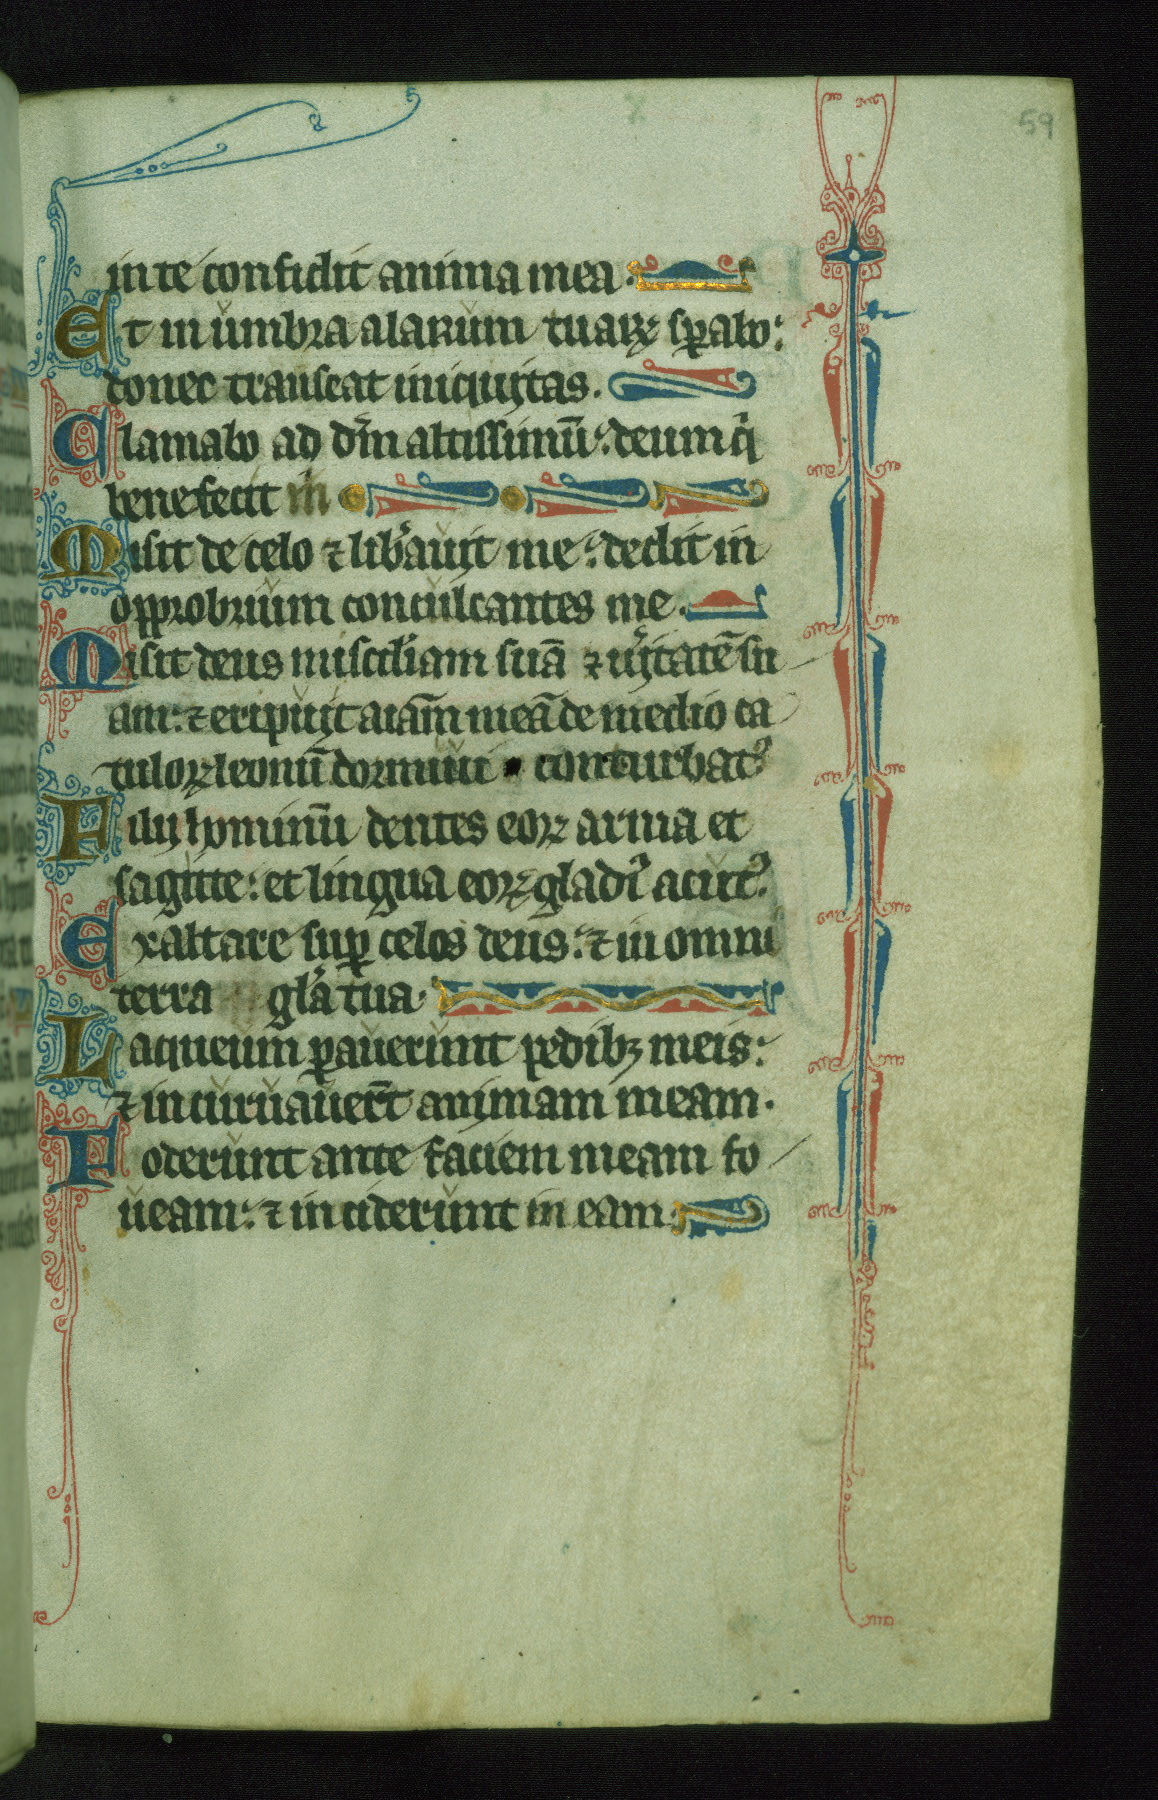 59
in te confidit anima mea.
Et in umbra alarum tuaꝝ sꝑabo:
donec transeat iniquitas.
Clamabo ad dm̄ altissimū: deum qͥ
benefecit m̄
Misit de celo ⁊ lib̾auit me: dedit in
opprobrium conculcantes me.
Misit deus misc̾diam suā ⁊ u̾itatē su
am: ⁊ eripuit aīam meā de medio ca
tuloꝝ leonū dormiui conturbatꝰ
Filij hominū dentes eoꝝ arma et
sagitte: et lingua eoꝝ gladiꝰ acutꝰ.
Exaltare suꝑ celos deus: ⁊ in omni
terra gl̄a tua.
Laqueum ꝑauerunt pedibꝫ meis:
⁊ incuruauer̄t animam meam.
Foderunt ante faciem meam fo
ueam: ⁊ inciderunt in eam.